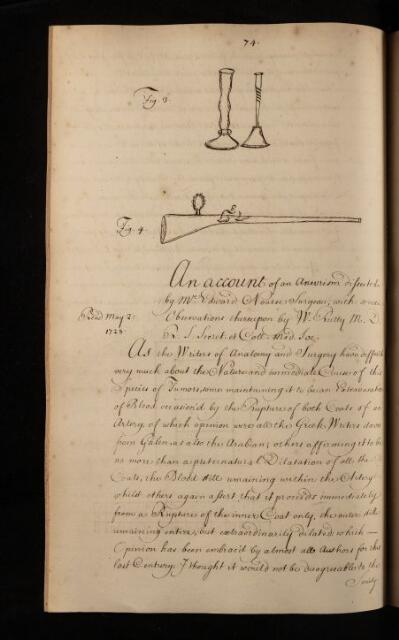 74.
Fig 3.
Fig. 4.
An account of an Aneurism dissected
by Mr. Edward Nourse Surgeon; with some
Observations thereupon by W. Rutty M. D.
R. S. Secret. et Coll. Med. Soc.
Read May 2.
1728.
As the Writers of Anatomy and Surgery have differ'd
very much about the Nature and immediate Cause of this
Species of Tumors, some maintaining it to be an Extravasation
of Blood occasion'd by the Rupture of both Coats of an
Artery, of which opinion were all the Greek Writers down
from Galen, as also the Arabian; others affirming it to be
no more than a preternatural Dilatation of all the
Coats, the Blood still remaining within the Artery
whilst others again assert, that it proceeds immediately
from a Rupture of the inner Coat only, the outer still
remaining entire, but extraordinarily dilated which —
Opinion has been embrac'd by almost all Authors for this
last Century; I thought it would not be disagreeable to the